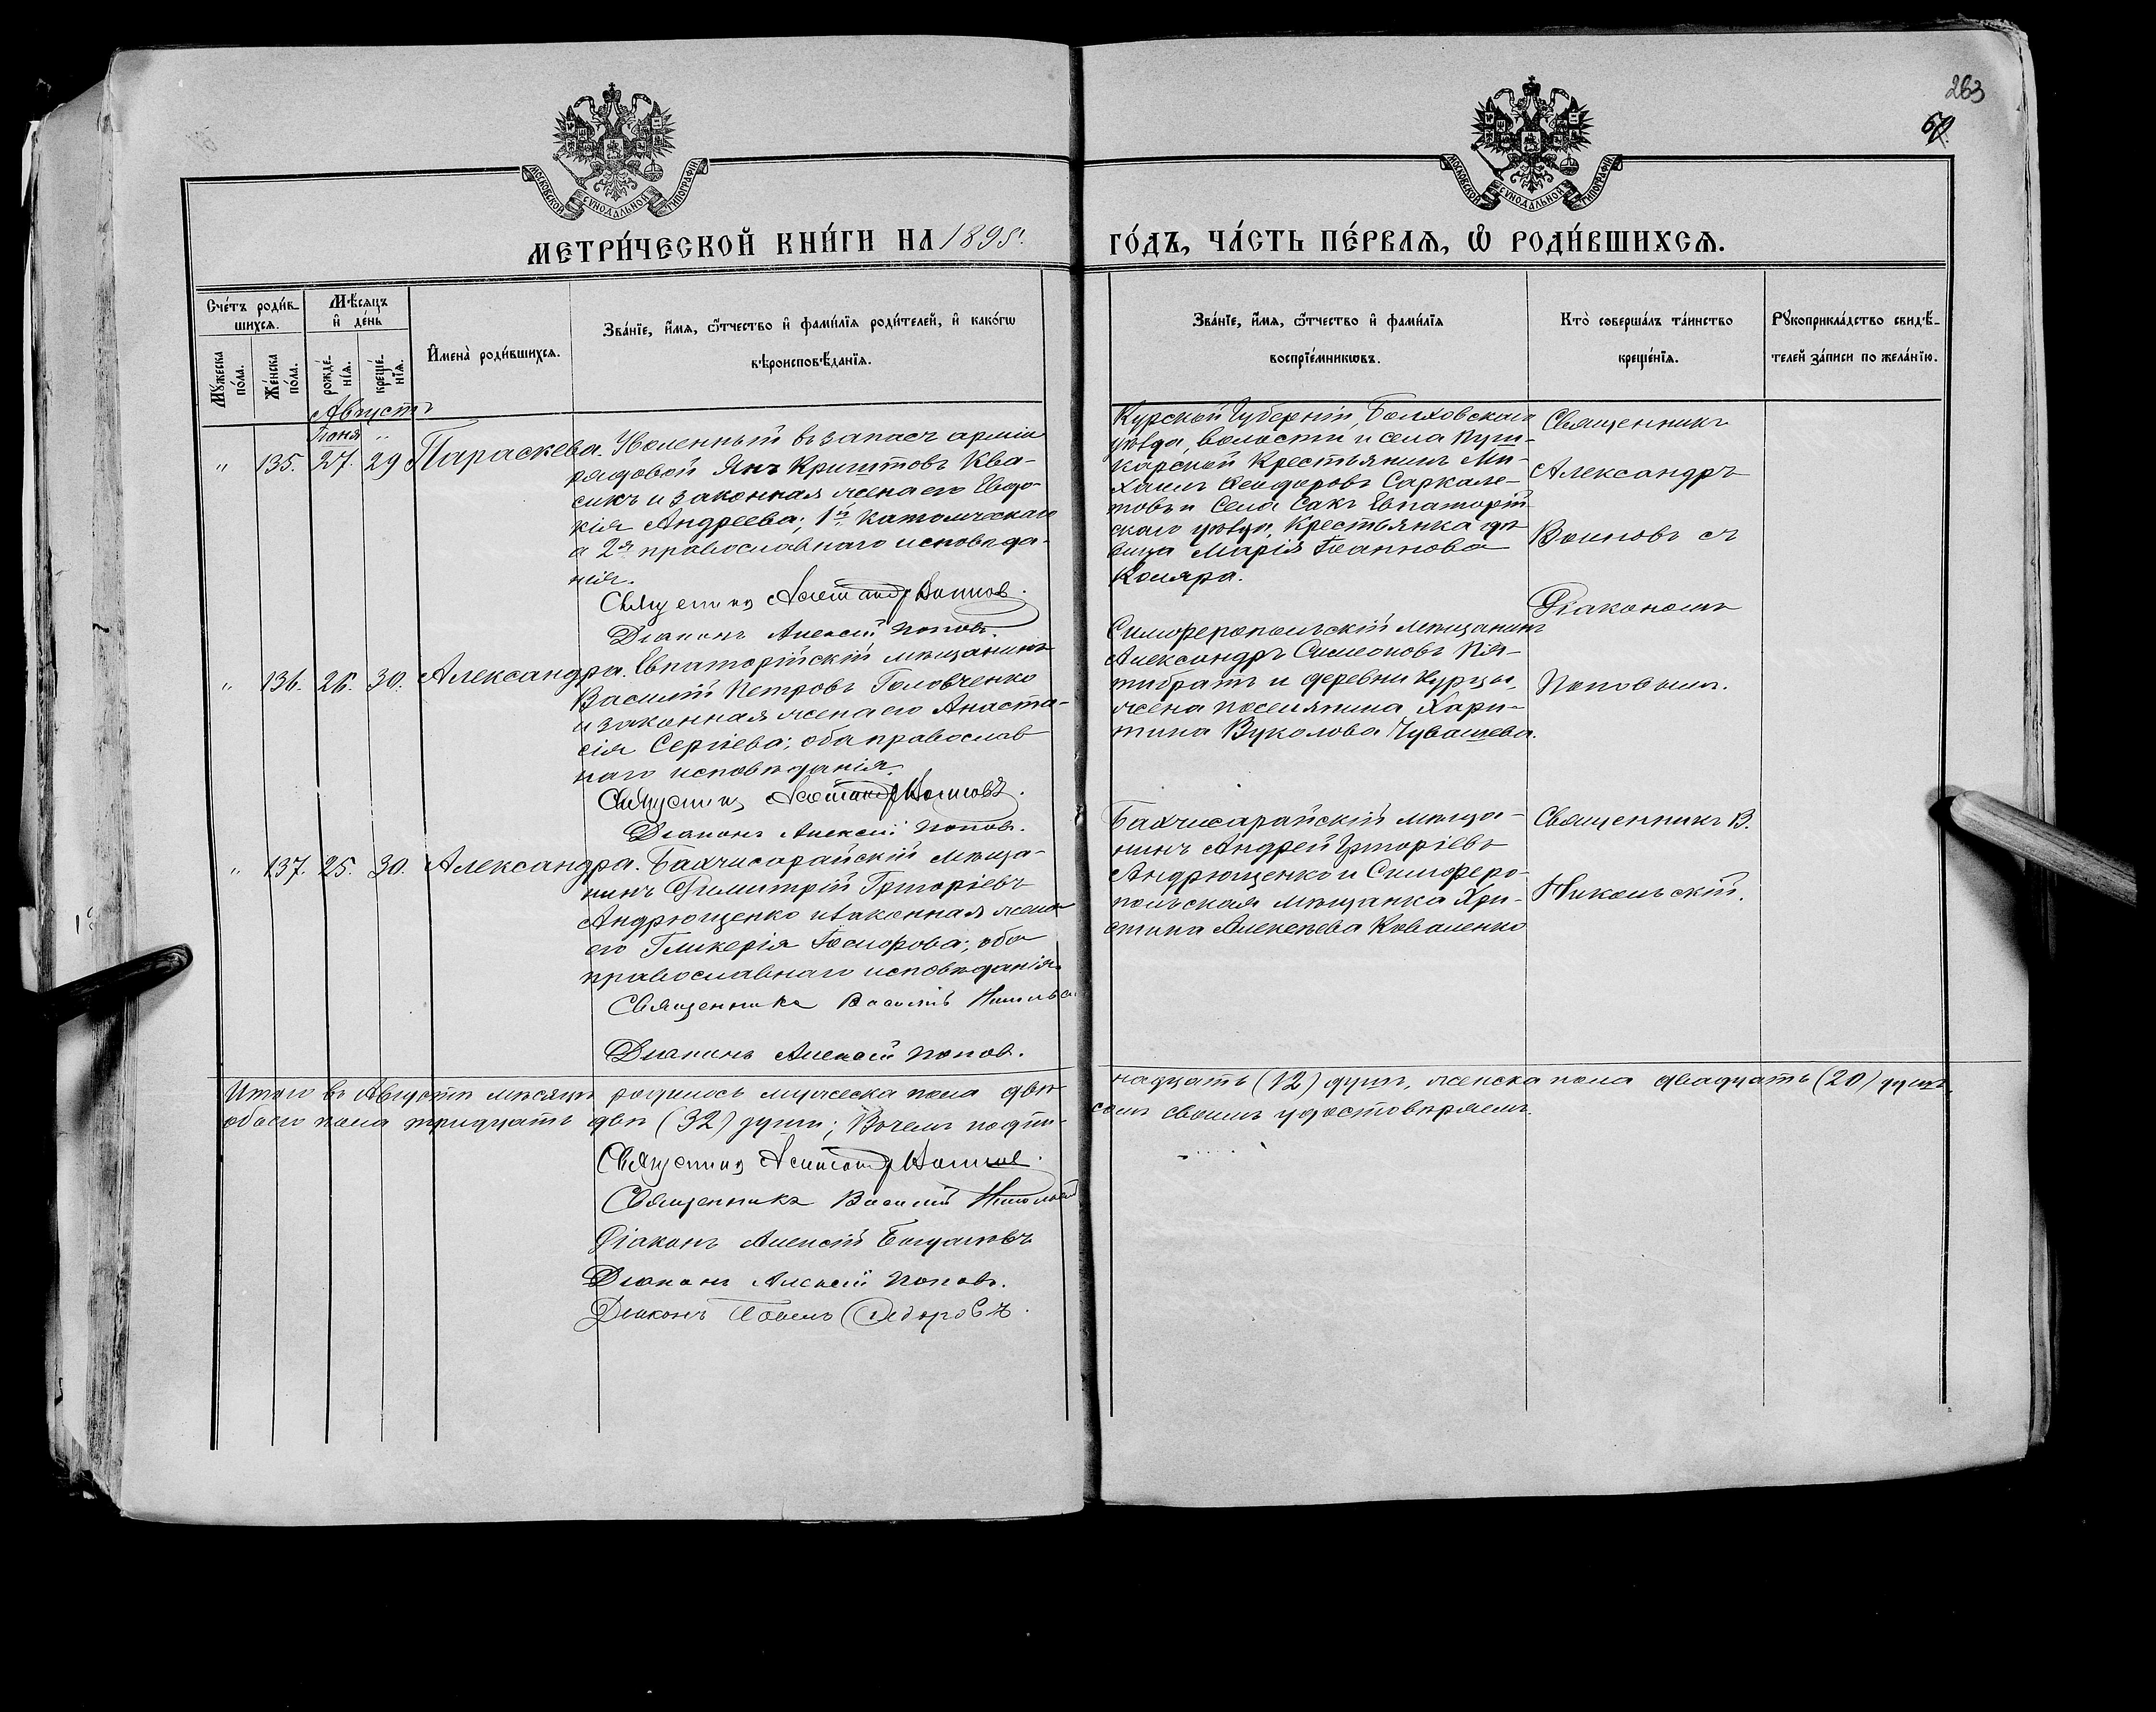 263
МОСКОВСКОЙ СѴНОДАЛЬНОЙ ТИПОГРАФІИ
МОСКОВСКОЙ СѴНОДАЛЬНОЙ ТИПОГРАФІИ
МЕТРИ́ЧЕСКОЙ КНИ́ГИ НА 1895 г.
ГО́ДЪ, ЧА́СТЬ ПЕ́РВАѦ, Ѽ РОДИ́ВШИХСѦ.
Сче́тъ роди́в-
шихсѧ.
Мѣ́сяцъ
и҆ де́нь
Мꙋ́жеска
по́ла.
Же́нска
по́ла.
рожде́-
нїѧ.
креще́-
нїѧ.
И҆мена̀ роди́вшихсѧ.
Зва́нїе, и҆́мѧ, ѻ҆́тчество и҆ фами́лїѧ роди́телей, и҆ како́гѡ
вѣроисповѣ́данїѧ.
Зва́нїе, и҆́мѧ, ѻ҆́тчество и҆ фами́лїѧ
воспрїе́мникѡвъ.
Кто̀ соверша́лъ та́инство
креще́нїѧ.
Рꙋкоприкла́дство свидѣ́-
телей за́писи по жела́нїю.
Августъ
Іюня "
" 135. 27. 29 Параскева. Уволенный въ запасъ арміи
рядовой Янъ Криштовъ Ква-
сикъ и законная жена его Евдо-
кія Андреева; 1й католическаго
а 2я православнаго исповѣда-
нія.
Священникъ Александръ Воиновъ.
Діаконъ Алексій Поповъ.
Курской Губерніи,
уѣзда, волости и села Пуш-
карской Крестьянинъ Ми-
хаилъ Ѳеодоровъ Саркале-
товъ и Села Сакъ Евпаторій-
скаго уѣзда, Крестьянка дѣ-
вица Марія Іоаннова
Коляра.
Священникъ
Александръ
Воиновъ съ
Діакономъ
Поповымъ.
" 136. 26. 30. Александра. Евпаторійскій мѣщанинъ
Василій Петровъ Головченко
и законная жена его Анаста-
сія Сергіева; оба православ-
наго исповѣданія.
Священникъ Александръ Воиновъ.
Діаконъ Алексій Поповъ.
Симферопольскій мѣщанинъ
Александръ Симеоновъ Пя-
тибратъ и деревни Курцы,
жена поселянина Хари-
тина Вуколова Чувашева.
" 137. 25. 30. Александра. Бахчисарайскій мѣща-
нинъ Димитрій Григоріевъ
Андрющенко и законная жена
его Гликерія Ѳеодорова; оба
православнаго исповѣданія.
Священникъ Василій Никольск
Діаконъ Алексій Поповъ.
Бахчисарайскій мѣща-
нинъ Андрей Григоріевъ
Андрющенко и Симферо-
польская мѣщанка Хри-
стина Алексѣева Коваленко
Священникъ В.
Никольскій.
Итого въ Августѣ мѣсяцѣ родилось мужеска пола двѣ-
надцать (12) душъ, женска пола двадцать (20) душъ,
обоего пола тридцать двѣ (32) души; Въ чемъ подпи-
сомъ своимъ удостовѣряемъ.
Священникъ Александръ Воиновъ.
Священникъ Василій Никольскій
Діаконъ Алексій
Діаконъ Алексій Поповъ.
Діаконъ Павелъ Ѳедоровъ.